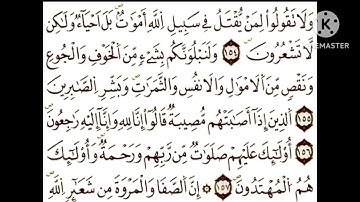 وَلَا تَقُولُوا۟ لِمَن يُقْتَلُ فِى سَبِيلِ ٱللَّهِ أَمْوَٰتٌۢ بَلْ أَحْيَآءٌ وَلَٰكِن
لَّا تَشْعُرُونَ ١٥٤ وَلَنَبْلُوَنَّكُم بِشَىْءٍ مِّنَ ٱلْخَوْفِ وَٱلْجُوعِ
وَنَقْصٍ مِّنَ ٱلْأَمْوَٰلِ وَٱلْأَنفُسِ وَٱلثَّمَرَٰتِ وَبَشِّرِ ٱلصَّٰبِرِينَ
١٥٥ ٱلَّذِينَ إِذَآ أَصَٰبَتْهُم مُّصِيبَةٌ قَالُوٓا۟ إِنَّا لِلَّهِ وَإِنَّآ إِلَيْهِ رَٰجِعُونَ
١٥٦ أُو۟لَٰٓئِكَ عَلَيْهِمْ صَلَوَٰتٌ مِّن رَّبِّهِمْ وَرَحْمَةٌ وَأُو۟لَٰٓئِكَ
هُمُ ٱلْمُهْتَدُونَ ١٥٧ ۞ إِنَّ ٱلصَّفَا وَٱلْمَرْوَةَ مِن شَعَآئِرِ ٱللَّهِ
KINEMASTER